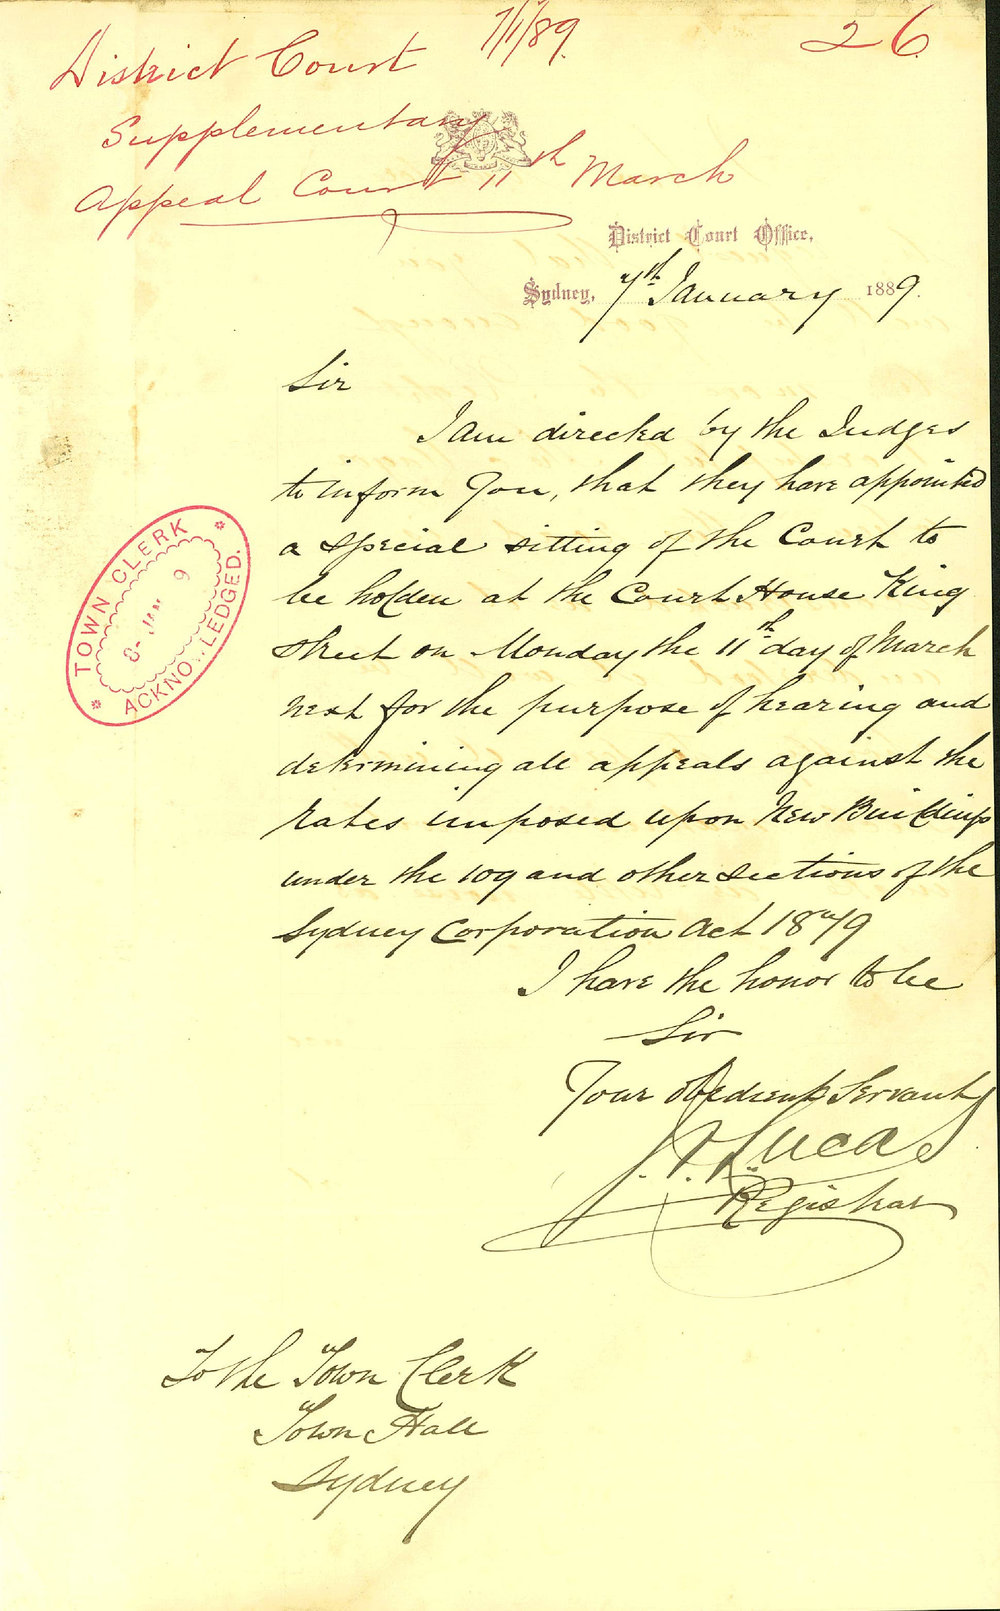 7/1/89.
26
District Court
Supplementary
Appeal Court 11th March
District Court Office,
Sydney, 7th January 1889.
Sir
I am directed by the Judges
to inform You, that they have appointed
a special sitting of the Court to
be holden at the Court House King
Street on Monday the 11th day of March
next for the purpose of hearing and
determining all appeals against the
Rates imposed upon New Buildings
under the 109 and other sections of the
Sydney Corporation Act 1879
I have the honor to be
Sir
Your obedient Servant
Lucas
Registrar
TOWN CLERK
8-
9
ACKNO..LEDGED.
To the Town Clerk
Town Hall
Sydney